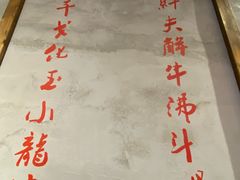 夫解牛沸斗
戈化玉小龍